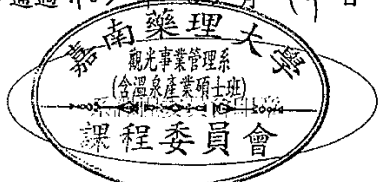 嘉南藥理大學
觀光事業管理系
(含溫泉產業碩士班)
課程委員會